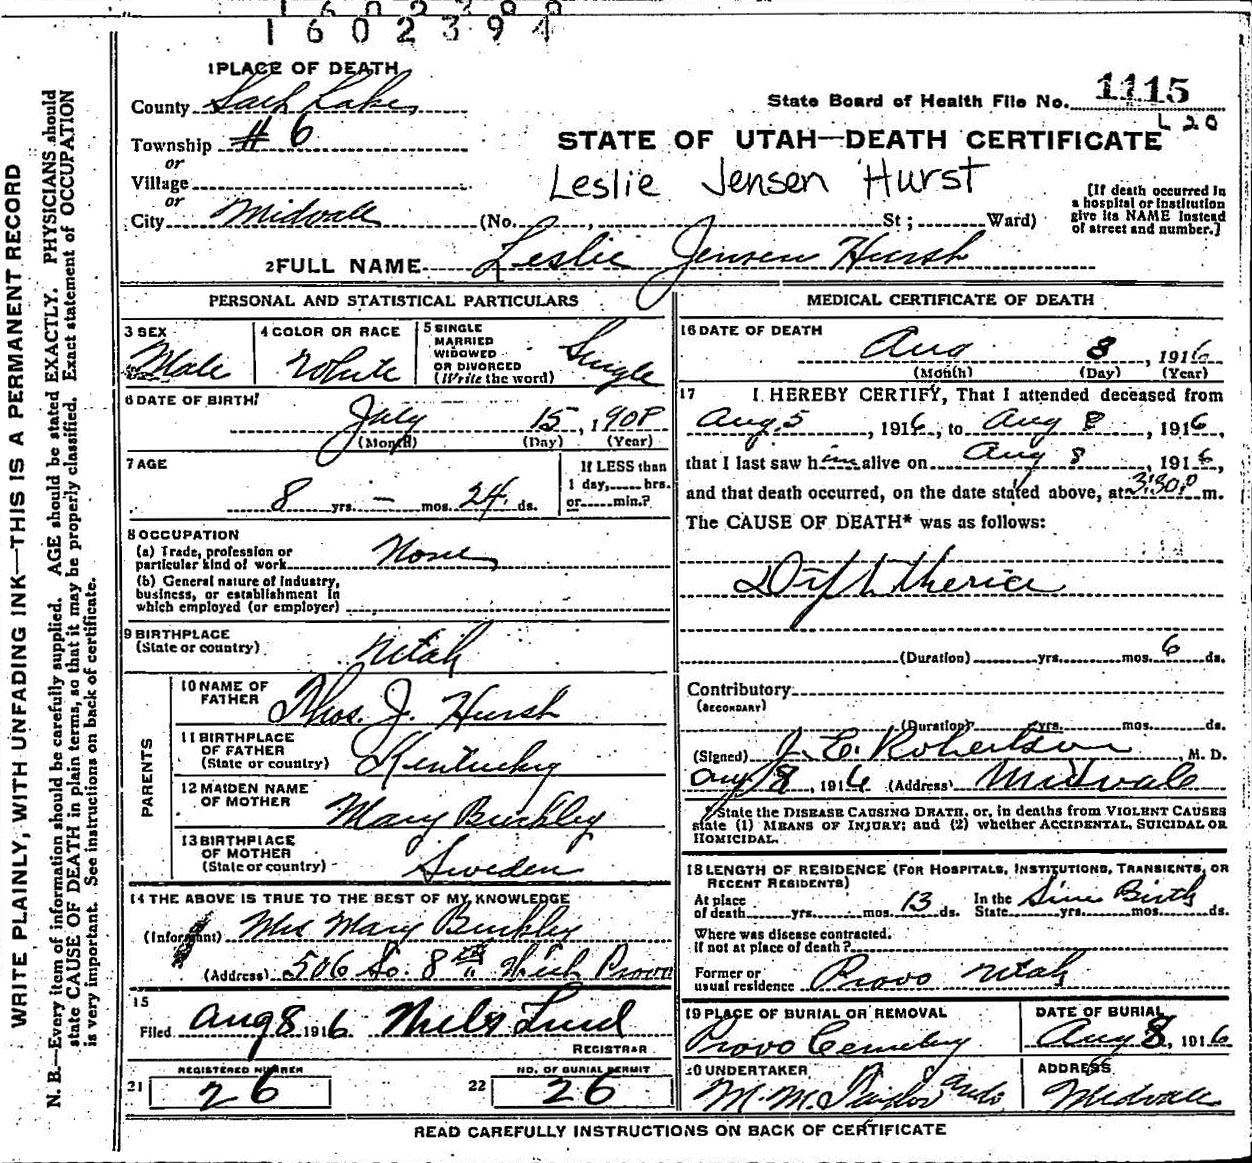 1602394
1 PLACE OF DEATH
County Salt Lake
State Board of Health File No. 1115
L 20
Township #6
STATE OF UTAH—DEATH CERTIFICATE
or
Village
Leslie Jensen Hurst
or
City Midvale (No. , St; Ward)
[If death occurred in a hospital or institution give its NAME instead of street and number.]
2 FULL NAME Leslie Jensen Hursh
PERSONAL AND STATISTICAL PARTICULARS
3 SEX
Male
4 COLOR OR RACE
White
5 SINGLE MARRIED WIDOWED OR DIVORCED (Write the word)
Single
6 DATE OF BIRTH
July 15, 1908
(Month) (Day) (Year)
7 AGE
8 yrs. — mos. 24 ds.
If LESS than 1 day, hrs. or min.?
8 OCCUPATION
(a) Trade, profession or particular kind of work None
(b) General nature of industry, business, or establishment in which employed (or employer)
9 BIRTHPLACE
(State or country) Utah
PARENTS
10 NAME OF FATHER Thos. J. Hursh
11 BIRTHPLACE OF FATHER (State or country) Kentucky
12 MAIDEN NAME OF MOTHER Mary Buckley
13 BIRTHPLACE OF MOTHER (State or country) Sweden
14 THE ABOVE IS TRUE TO THE BEST OF MY KNOWLEDGE
(Informant) Mrs Mary Buckley
(Address) 506 So. 8th Provo
15
Filed Aug 8 1916
REGISTRAR
REGISTERED NUMBER
21 26
NO. OF BURIAL PERMIT
22 26
MEDICAL CERTIFICATE OF DEATH
16 DATE OF DEATH
Aug 8, 1916
(Month) (Day) (Year)
17 I HEREBY CERTIFY, That I attended deceased from
Aug 5, 1916, to Aug 8, 1916,
that I last saw him alive on Aug 8, 1916,
and that death occurred, on the date stated above, at 3:30P m.
The CAUSE OF DEATH* was as follows:
Diphtheria
(Duration) yrs. mos. 6 ds.
Contributory
(SECONDARY)
(Duration) yrs. mos. ds.
(Signed) J. E. Robertson M. D.
Aug 8, 1916 (Address) Midvale
*State the DISEASE CAUSING DEATH, or, in deaths from VIOLENT CAUSES
state (1) MEANS OF INJURY; and (2) whether ACCIDENTAL, SUICIDAL OR
HOMICIDAL.
18 LENGTH OF RESIDENCE (FOR HOSPITALS, INSTITUTIONS, TRANSIENTS, OR
RECENT RESIDENTS)
At place of death yrs. mos. 13 ds. In the State Since Birth yrs. mos. ds.
Where was disease contracted.
if not at place of death?
Former or usual residence Provo Utah
19 PLACE OF BURIAL OR REMOVAL
Provo Cemetery
DATE OF BURIAL
Aug 8, 1916
20 UNDERTAKER
M. M.
ADDRESS
Midvale
READ CAREFULLY INSTRUCTIONS ON BACK OF CERTIFICATE
WRITE PLAINLY, WITH UNFADING INK—THIS IS A PERMANENT RECORD
N. B.—Every item of information should be carefully supplied. AGE should be stated EXACTLY. PHYSICIANS should
state CAUSE OF DEATH in plain terms, so that it may be properly classified. Exact statement of OCCUPATION
is very important. See instructions on back of certificate.